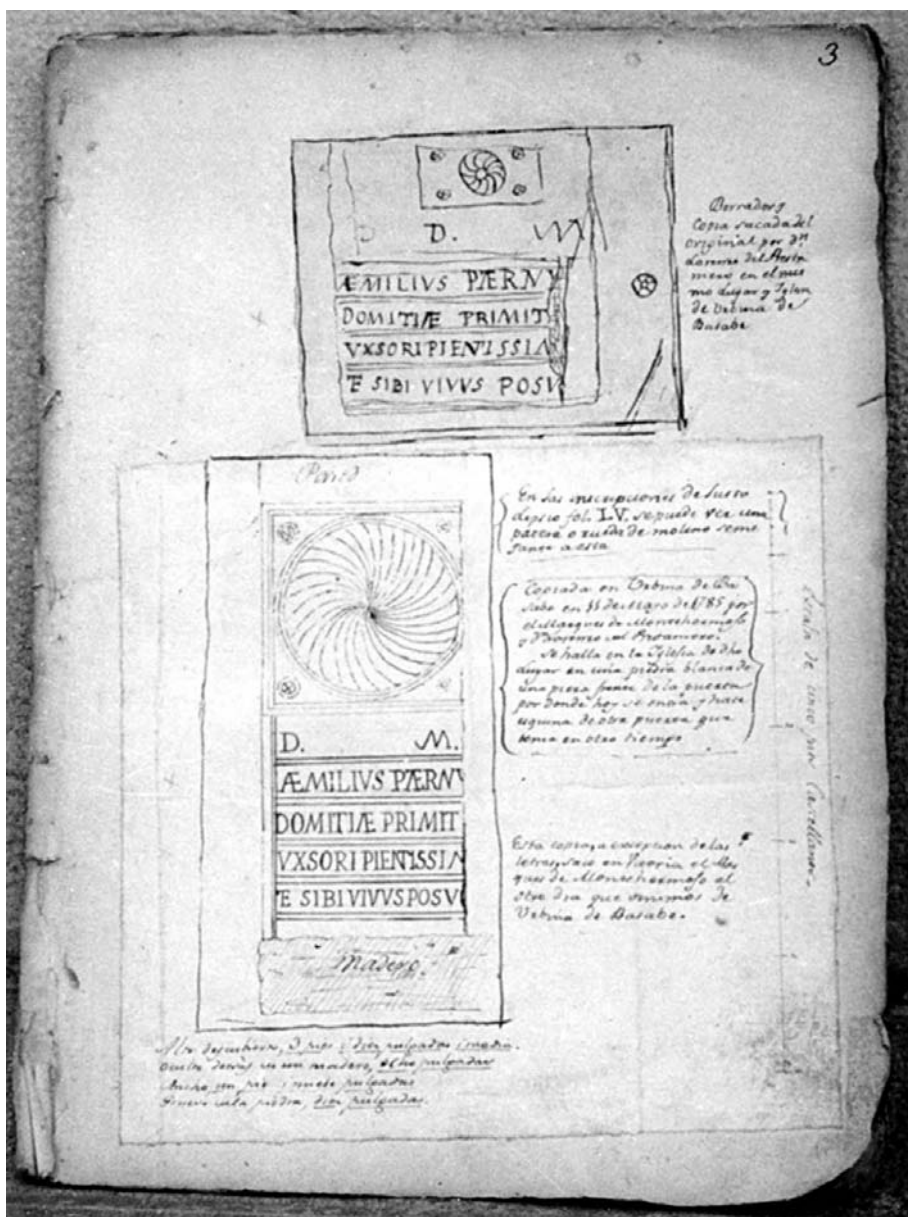 3
D. M
ÆMILIVS PÆRNV
DOMITIÆ PRIMIT
VXSORI PIENTISSIM
E SIBI VIVVS POSV
Borrador y
Copia sacada del
original por Dn
Lorenzo del Presta
mero en el mis
mo Lugar y Iglesia
de Urbina de
Basabe
Pared
D. M.
ÆMILIVS PÆRNV
DOMITIÆ PRIMIT
VXSORI PIENTISSIM
E SIBI VIVVS POSVI
Madero
En las inscripciones de Justo
Lipsio fol. LV. se puede ver una
patera o rueda de molino seme
jante a esta
Copiada en Urbina de Ba
sabe en 11 de Marzo de 1785 por
el Marques de Montehermoso
y Dn Lorenzo del Prestamero.
Se halla en la Iglesia de dho
Lugar en una piedra blanca de
una pieza frente de la puerta
por donde hoy se entra y hace
esquina de otra puerta que
tenia en otro tiempo
Esta copia, a excepcion de las
letras, saco en Vitoria el Mar
ques de Montehermoso el
otro dia que vinimos de
Urbina de Basabe.
Escala de cinco pies Castellanos.
Alto descubierto, 3 pies i diez pulgadas i media.
Oculto detrás de un madero, ocho pulgadas
Ancho un pie i nueve pulgadas
Grueso de la piedra, diez pulgadas.